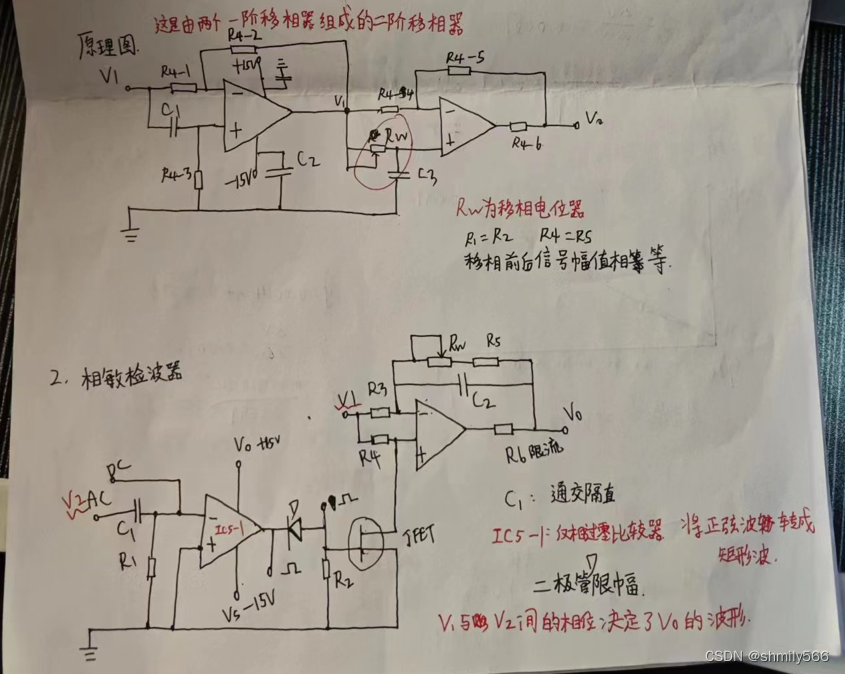 这是由两个一阶移相器组成的二阶移相器
原理图.
R4-2
+15V
V1
R4-1
C1
R4-3
-15V
C2
V1
Rw
C3
R4-5
R4-6
V2
Rw为移相电位器
R1=R2 R4=R5
移相前后信号幅值相等.
2. 相敏检波器
Rw R5
V1 R3
C2
R4
V0
R6限流
V0 +15V
DC
V2 AC
C1
IC5-1
D
JFET
R1
R2
VS -15V
C1: 通交隔直
IC5-1: 仅相过零比较器 将正弦波转成
矩形波.
D
二极管限幅.
V1与V2间的相位决定了V0的波形.
CSDN @shmily566